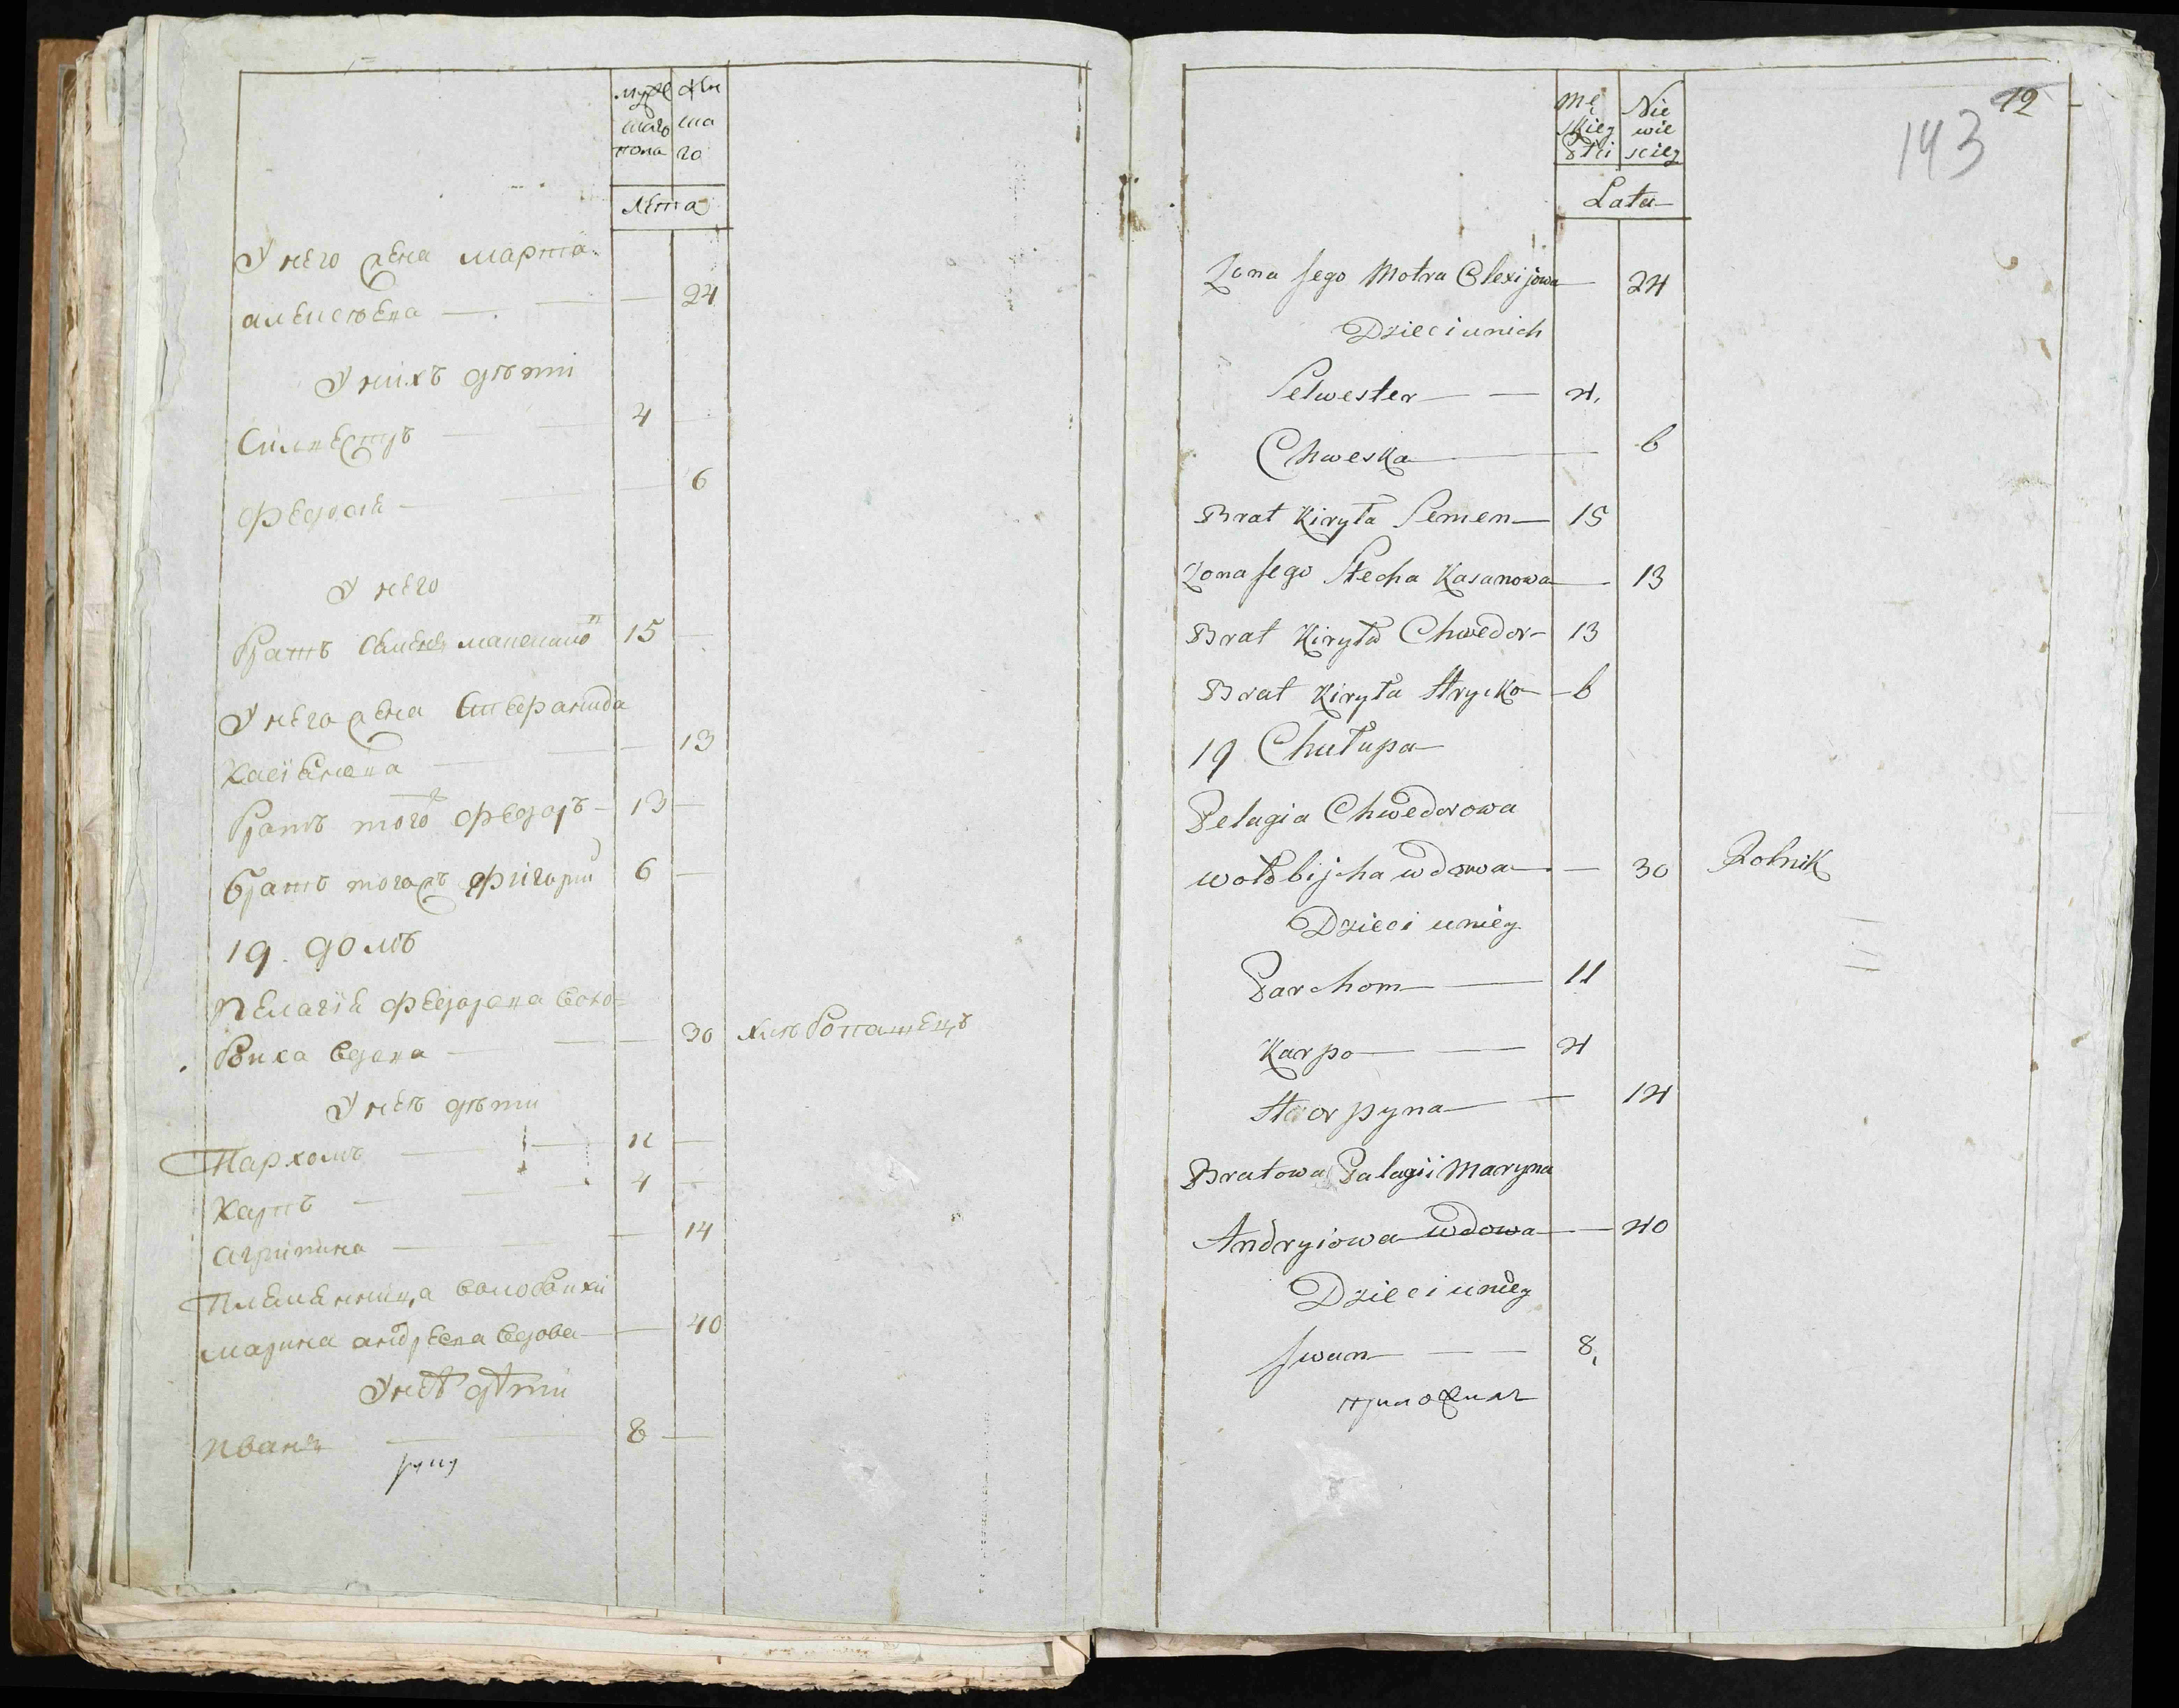 муже жен
скаго ска
пола го
Лета
У него жена марта
алексѣева — 24
У нихъ дѣти
Силвестръ — 4
Федосія — 6
У него
Братъ Семенъ 15
У него жена Степанида
Касіянова — 13
Братъ того Федоръ — 13
Братъ тогожъ Григорий 6
19. домъ
Пелагія Федорова Воло=
бииха вдова — 30 хлѣбопашецъ
У неѣ дѣти
Пархомъ — 11
Карпъ — 4
Агрипина — 14
Племенница Волобиихи
марина андреева вдова — 40
У неѣ дѣти
Иванъ — 8
руку
12
143
Mę Nie
skiey wie
Płci sciey
Lata
Zona Jego Motra Olexijowa — 24
Dzieci u nich
Selwester — 4
Chweska — 6
Brat Kiryła Semen — 15
Zona Jego Stecha Kasanowa — 13
Brat Kiryła Chwedor — 13
Brat Kiryła Hrycko — 6
19 Chałupa
Pelagia Chwedorowa
wołobijcha wdowa — 30 Rolnik
Dzieci u niey
Parchom — 11
Karpo — 4
Horpyna — 14
Bratowa Palagii Maryna
Andryiowa wdowa — 40
Dzieci u niey
Jwan — 8
приложилъ